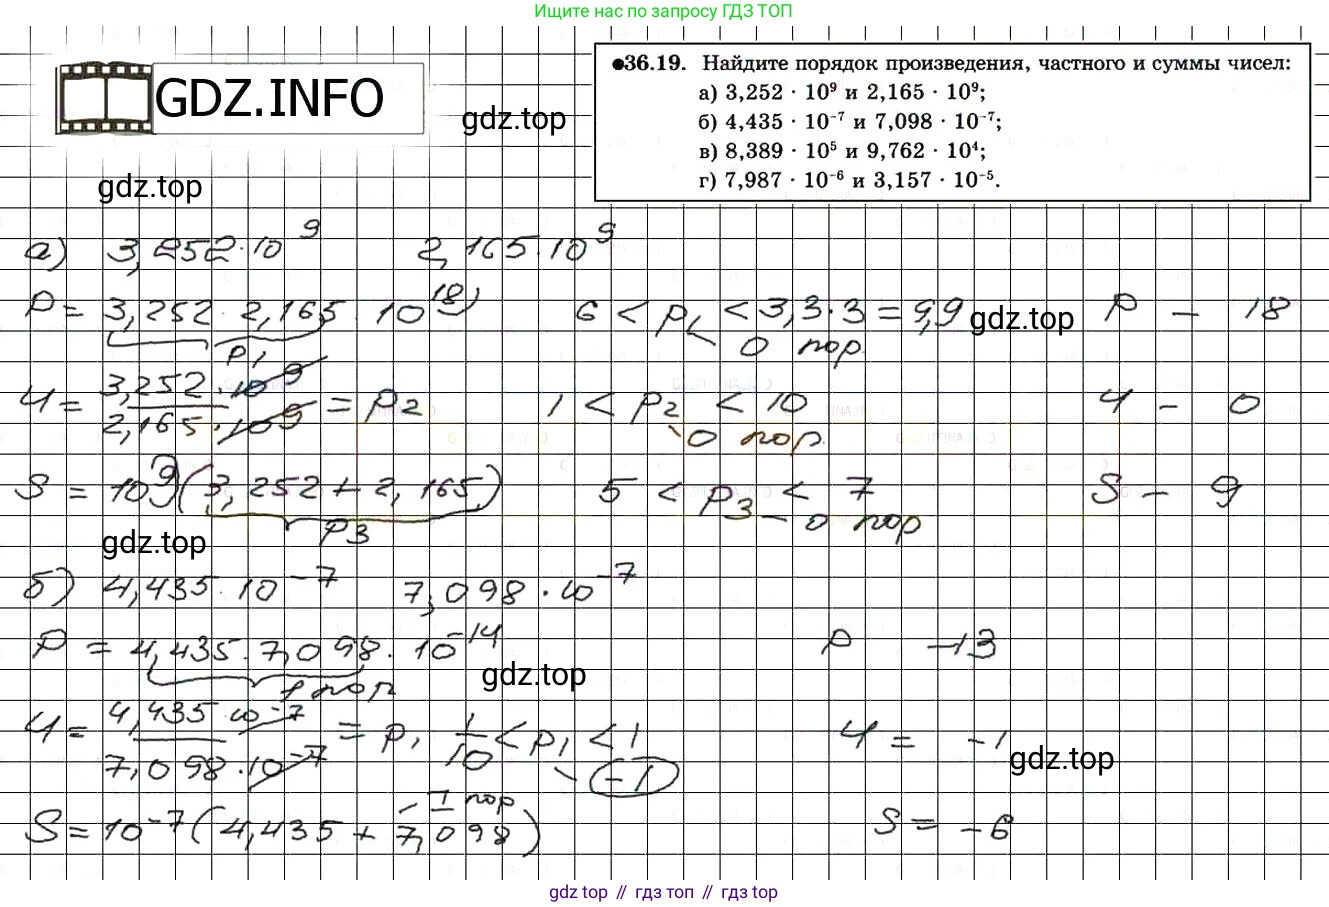 Ищите нас по запросу ГДЗ ТОП
GDZ.INFO
gdz.top
gdz.top
•36.19. Найдите порядок произведения, частного и суммы чисел:
а) 3,252 · 10⁹ и 2,165 · 10⁹;
б) 4,435 · 10⁻⁷ и 7,098 · 10⁻⁷;
в) 8,389 · 10⁵ и 9,762 · 10⁴;
г) 7,987 · 10⁻⁶ и 3,157 · 10⁻⁵.
а) 3,252 · 10⁹ 2,165 · 10⁹
P = 3,252 · 2,165 · 10¹⁸ 6 < P₁ < 3,3 · 3 = 9,9 gdz.top P – 18
P₁ 0 пор
Ч = 3,252 · 10⁹ / 2,165 · 10⁹ = P₂ 1 < P₂ < 10 Ч – 0
0 пор.
S = 10⁹ (3,252 + 2,165) 5 < P₃ < 7 S – 9
P₃ 0 пор
gdz.top
б) 4,435 · 10⁻⁷ 7,098 · 10⁻⁷
P = 4,435 · 7,098 · 10⁻¹⁴ P –13
1 пор
gdz.top
Ч = 4,435 · 10⁻⁷ / 7,098 · 10⁻⁷ = P₁ 1/10 < P₁ < 1 Ч = -1
-1
gdz.top
– I пор
S = 10⁻⁷ (4,435 + 7,098) S = -6
gdz top // гдз топ // гдз top